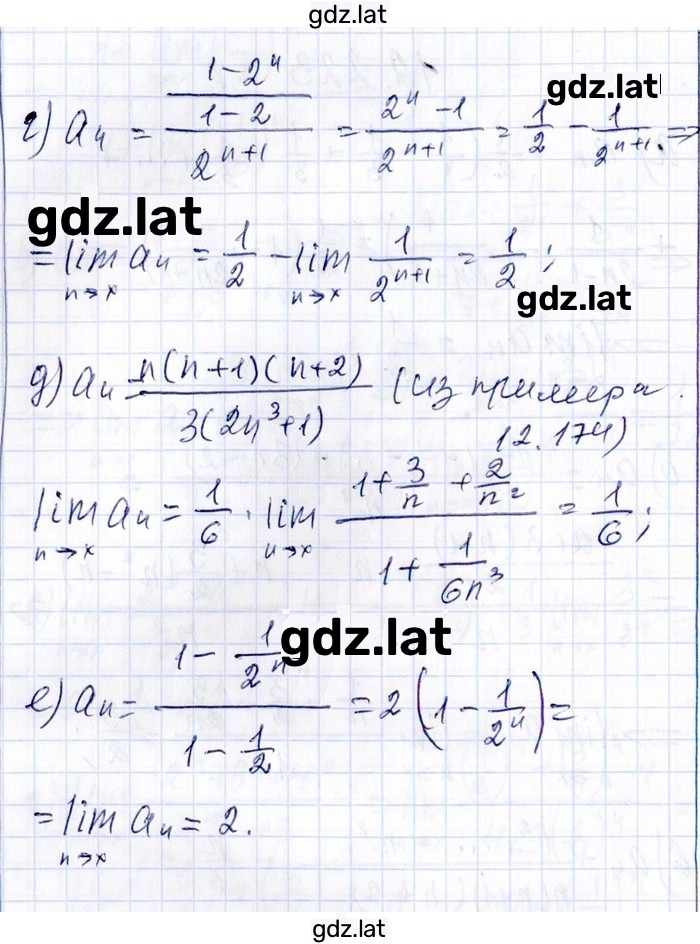 gdz.lat
gdz.lat
г) aₙ = ((1-2ⁿ)/(1-2))/(2ⁿ⁺¹) = (2ⁿ-1)/(2ⁿ⁺¹) = 1/2 - 1/(2ⁿ⁺¹) ⇒
gdz.lat
= lim aₙ = 1/2 - lim 1/(2ⁿ⁺¹) = 1/2;
n→x n→x
gdz.lat
д) aₙ = n(n+1)(n+2)/(3(2n³+1)) (из примера
12.174)
lim aₙ = 1/6 · lim (1 + 3/n + 2/n²)/(1 + 1/(6n³)) = 1/6;
n→x n→x
gdz.lat
е) aₙ = (1 - 1/2ⁿ)/(1 - 1/2) = 2(1 - 1/2ⁿ) =
= lim aₙ = 2.
n→x
gdz.lat